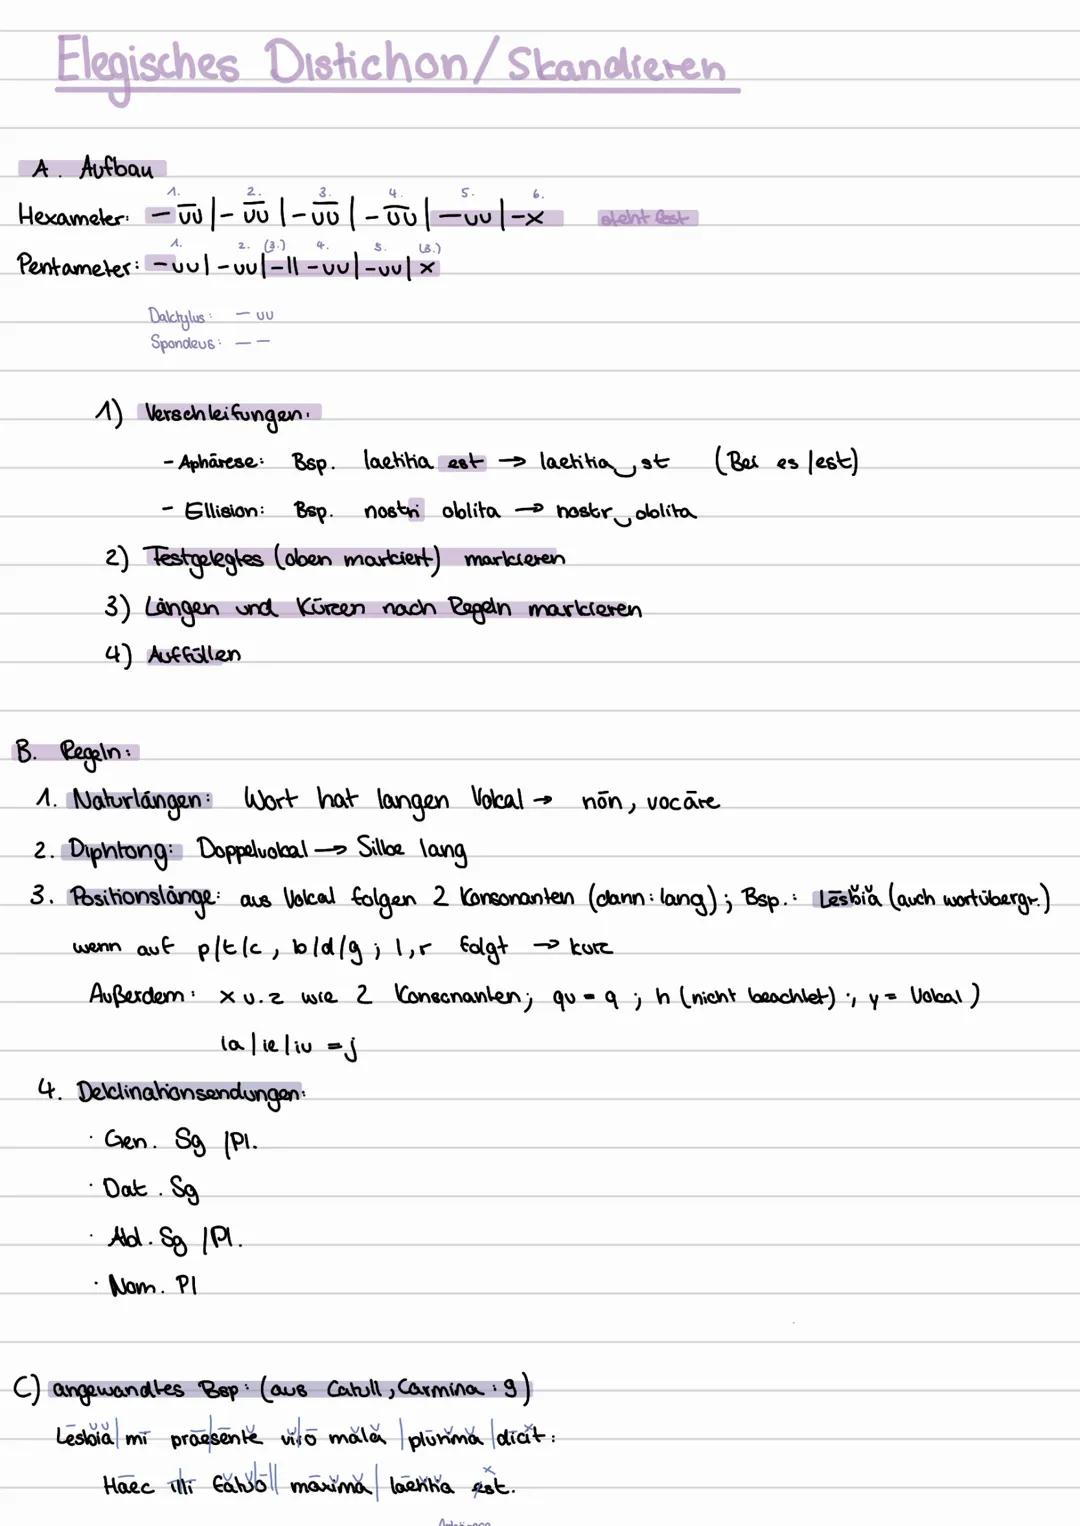 Elegisches Distichon/Skandieren
A. Aufbau
1. 2. 3. 4. 5. 6.
Hexameter: – ⏕ | – ⏕ | – ⏕ | – ⏕ | – ᴗᴗ | – x steht fest
1. 2. (3.) 4. 5. (3.)
Pentameter: – ᴗᴗ | – ᴗᴗ | – || – ᴗᴗ | – ᴗᴗ | x
Daktylus: – ᴗᴗ
Spondeus: – –
1) Verschleifungen:
- Aphärese: Bsp. laetitia est → laetitia‿st (Bei es/est)
- Ellision: Bsp. nostri oblita → nostr‿oblita
2) Festgelegtes (oben markiert) markieren
3) Längen und Kürzen nach Regeln markieren
4) Auffüllen
B. Regeln:
1. Naturlängen: Wort hat langen Vokal → nōn, vocāre
2. Diphtong: Doppelvokal → Silbe lang
3. Positionslänge: aus Vokal folgen 2 Konsonanten (dann: lang); Bsp.: Lēsbĭă (auch wortübergr.)
wenn auf p/t/c, b/d/g; l,r folgt → kurz
Außerdem: x u. z wie 2 Konsonanten; qu = q; h (nicht beachtet); y = Vokal)
ia/ie/iu = j
4. Deklinationsendungen:
· Gen. Sg /Pl.
· Dat. Sg
· Abl. Sg /Pl.
· Nom. Pl
C) angewandtes Bsp: (aus Catull, Carmina: 9)
Lēsbĭă| mī prāesēntĕ vĭrō mălă |plūrĭmă |dīcĭt:
Hāec īllī fătŭō|| māxĭmă| lāetĭtĭă est.